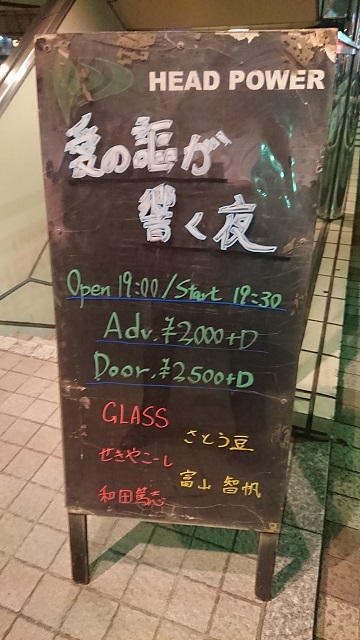 HEAD POWER
愛の謳が
響く夜
Open 19:00/Start 19:30
Adv.¥2000+D
Door.¥2500+D
GLASS
さとう豆
せきやこーし
富山 智帆
和田篤志